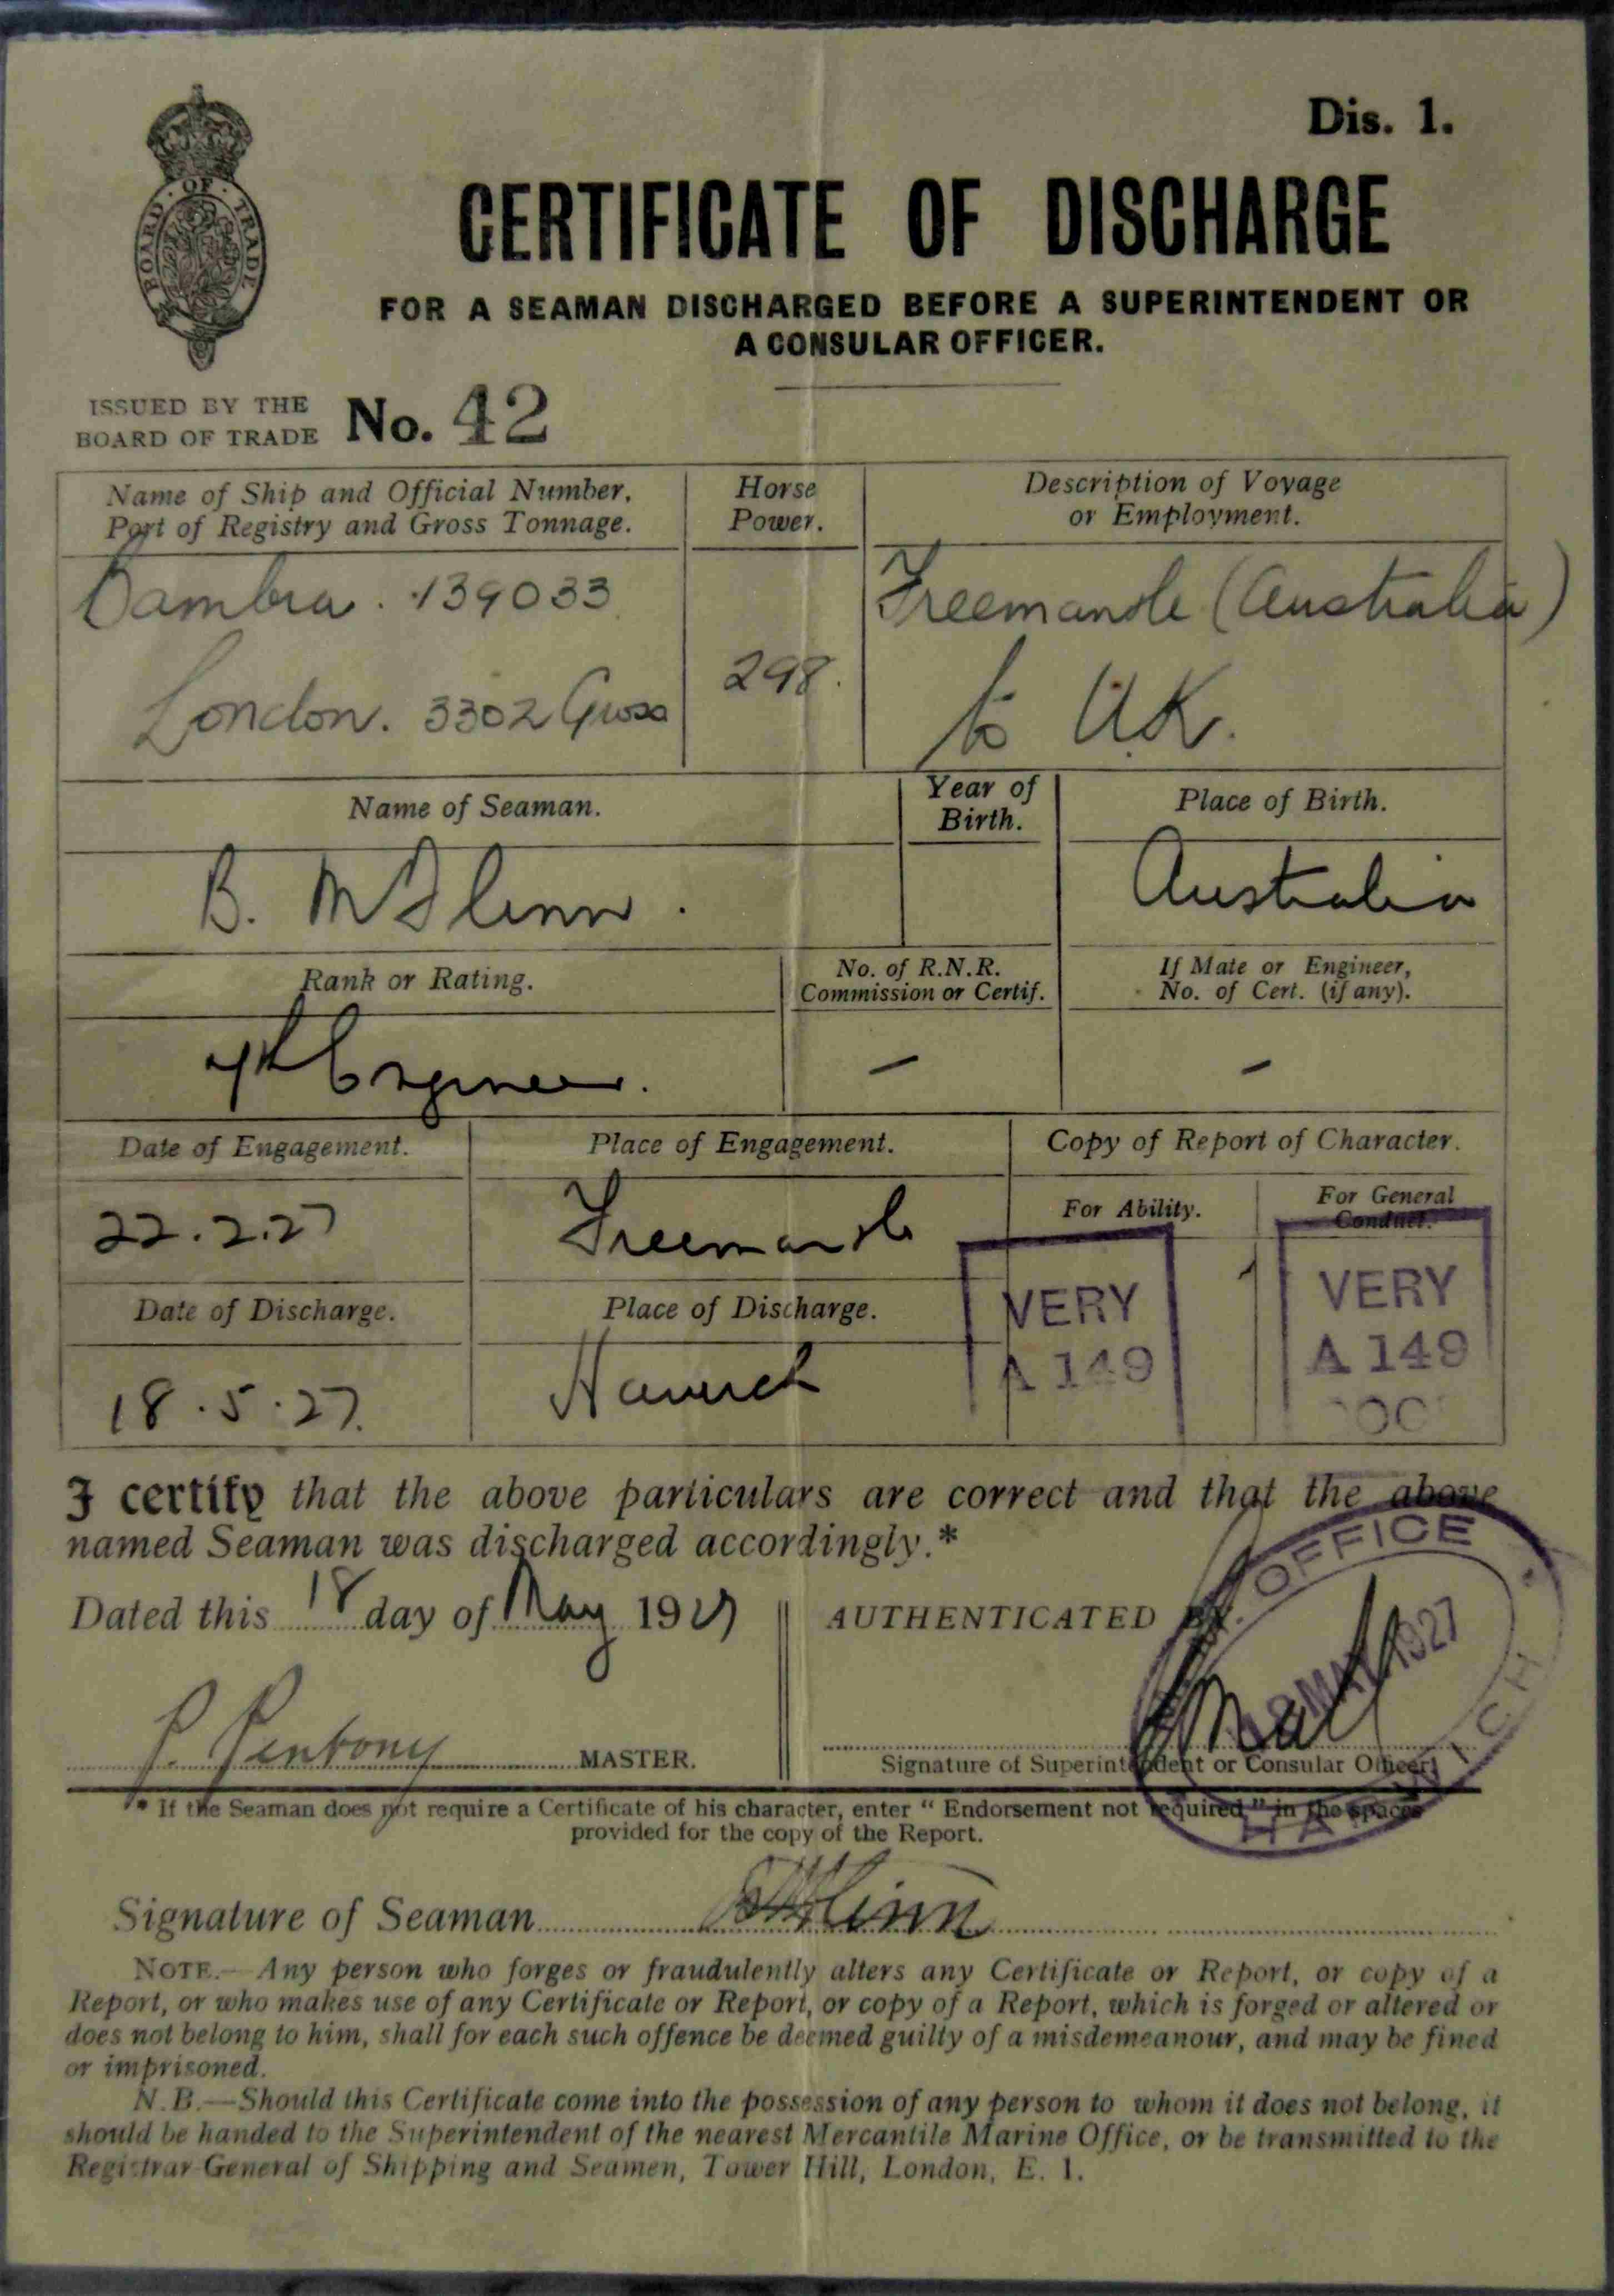 Dis. 1.
BOARD OF TRADE
CERTIFICATE OF DISCHARGE
FOR A SEAMAN DISCHARGED BEFORE A SUPERINTENDENT OR
A CONSULAR OFFICER.
ISSUED BY THE
BOARD OF TRADE No. 42
Name of Ship and Official Number, Port of Registry and Gross Tonnage.
Horse Power.
Description of Voyage or Employment.
Bambra. 139033
Freemantle (Australia)
London. 3302 Gross
298.
to U.K.
Name of Seaman.
Year of Birth.
Place of Birth.
B. McGlinn.
Australia
Rank or Rating.
No. of R.N.R. Commission or Certif.
If Mate or Engineer, No. of Cert. (if any).
4th Engineer.
–
–
Date of Engagement.
Place of Engagement.
Copy of Report of Character.
For Ability.
For General Conduct.
22.2.27
Freemantle
Date of Discharge.
Place of Discharge.
VERY
A 149
VERY
A 149
18.5.27.
Harwich
I certify that the above particulars are correct and that the above
named Seaman was discharged accordingly.*
Dated this 18 day of May 1927
AUTHENTICATED BY
OFFICE
MAY 1927
HARWICH
P. Penbony MASTER.
Signature of Superintendent or Consular Officer
* If the Seaman does not require a Certificate of his character, enter " Endorsement not required," in the spaces
provided for the copy of the Report.
Signature of Seaman
NOTE.—Any person who forges or fraudulently alters any Certificate or Report, or copy of a
Report, or who makes use of any Certificate or Report, or copy of a Report, which is forged or altered or
does not belong to him, shall for each such offence be deemed guilty of a misdemeanour, and may be fined
or imprisoned.
N.B.—Should this Certificate come into the possession of any person to whom it does not belong, it
should be handed to the Superintendent of the nearest Mercantile Marine Office, or be transmitted to the
Registrar General of Shipping and Seamen, Tower Hill, London, E. 1.